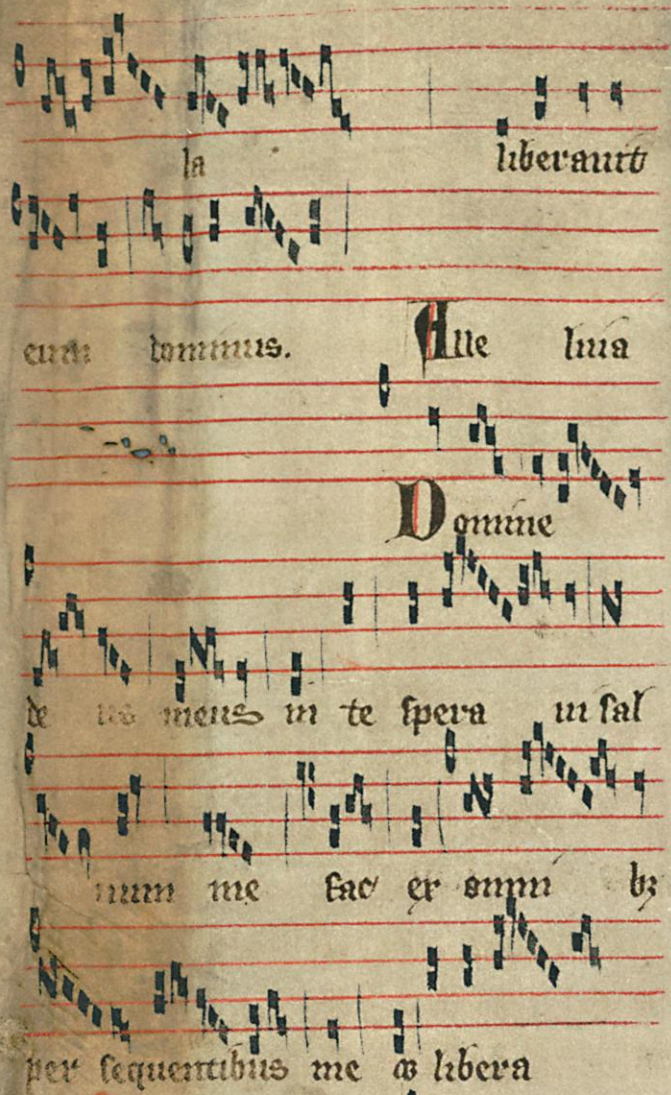 la liberauit
eum dominus. Alle luia
Domine
de us meus in te spera ui sal
uum me fac ex omni bꝫ
per sequentibus me ⁊ libera